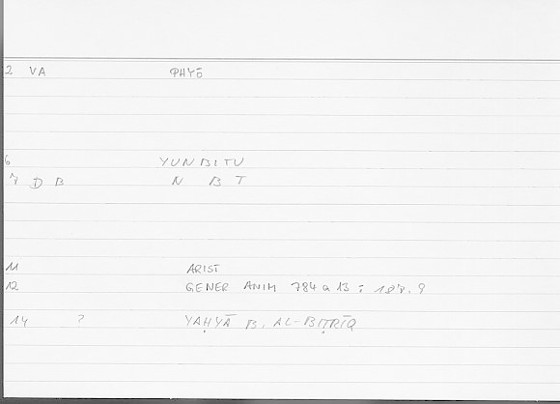 2 VA ΦΗΥΩ
6 YUNBITU
7 D B N B T
11 ARIST
12 GENER ANIM 784 a 13 : 187. 9
14 ? YAḤYĀ B. AL-BIṬRĪQ